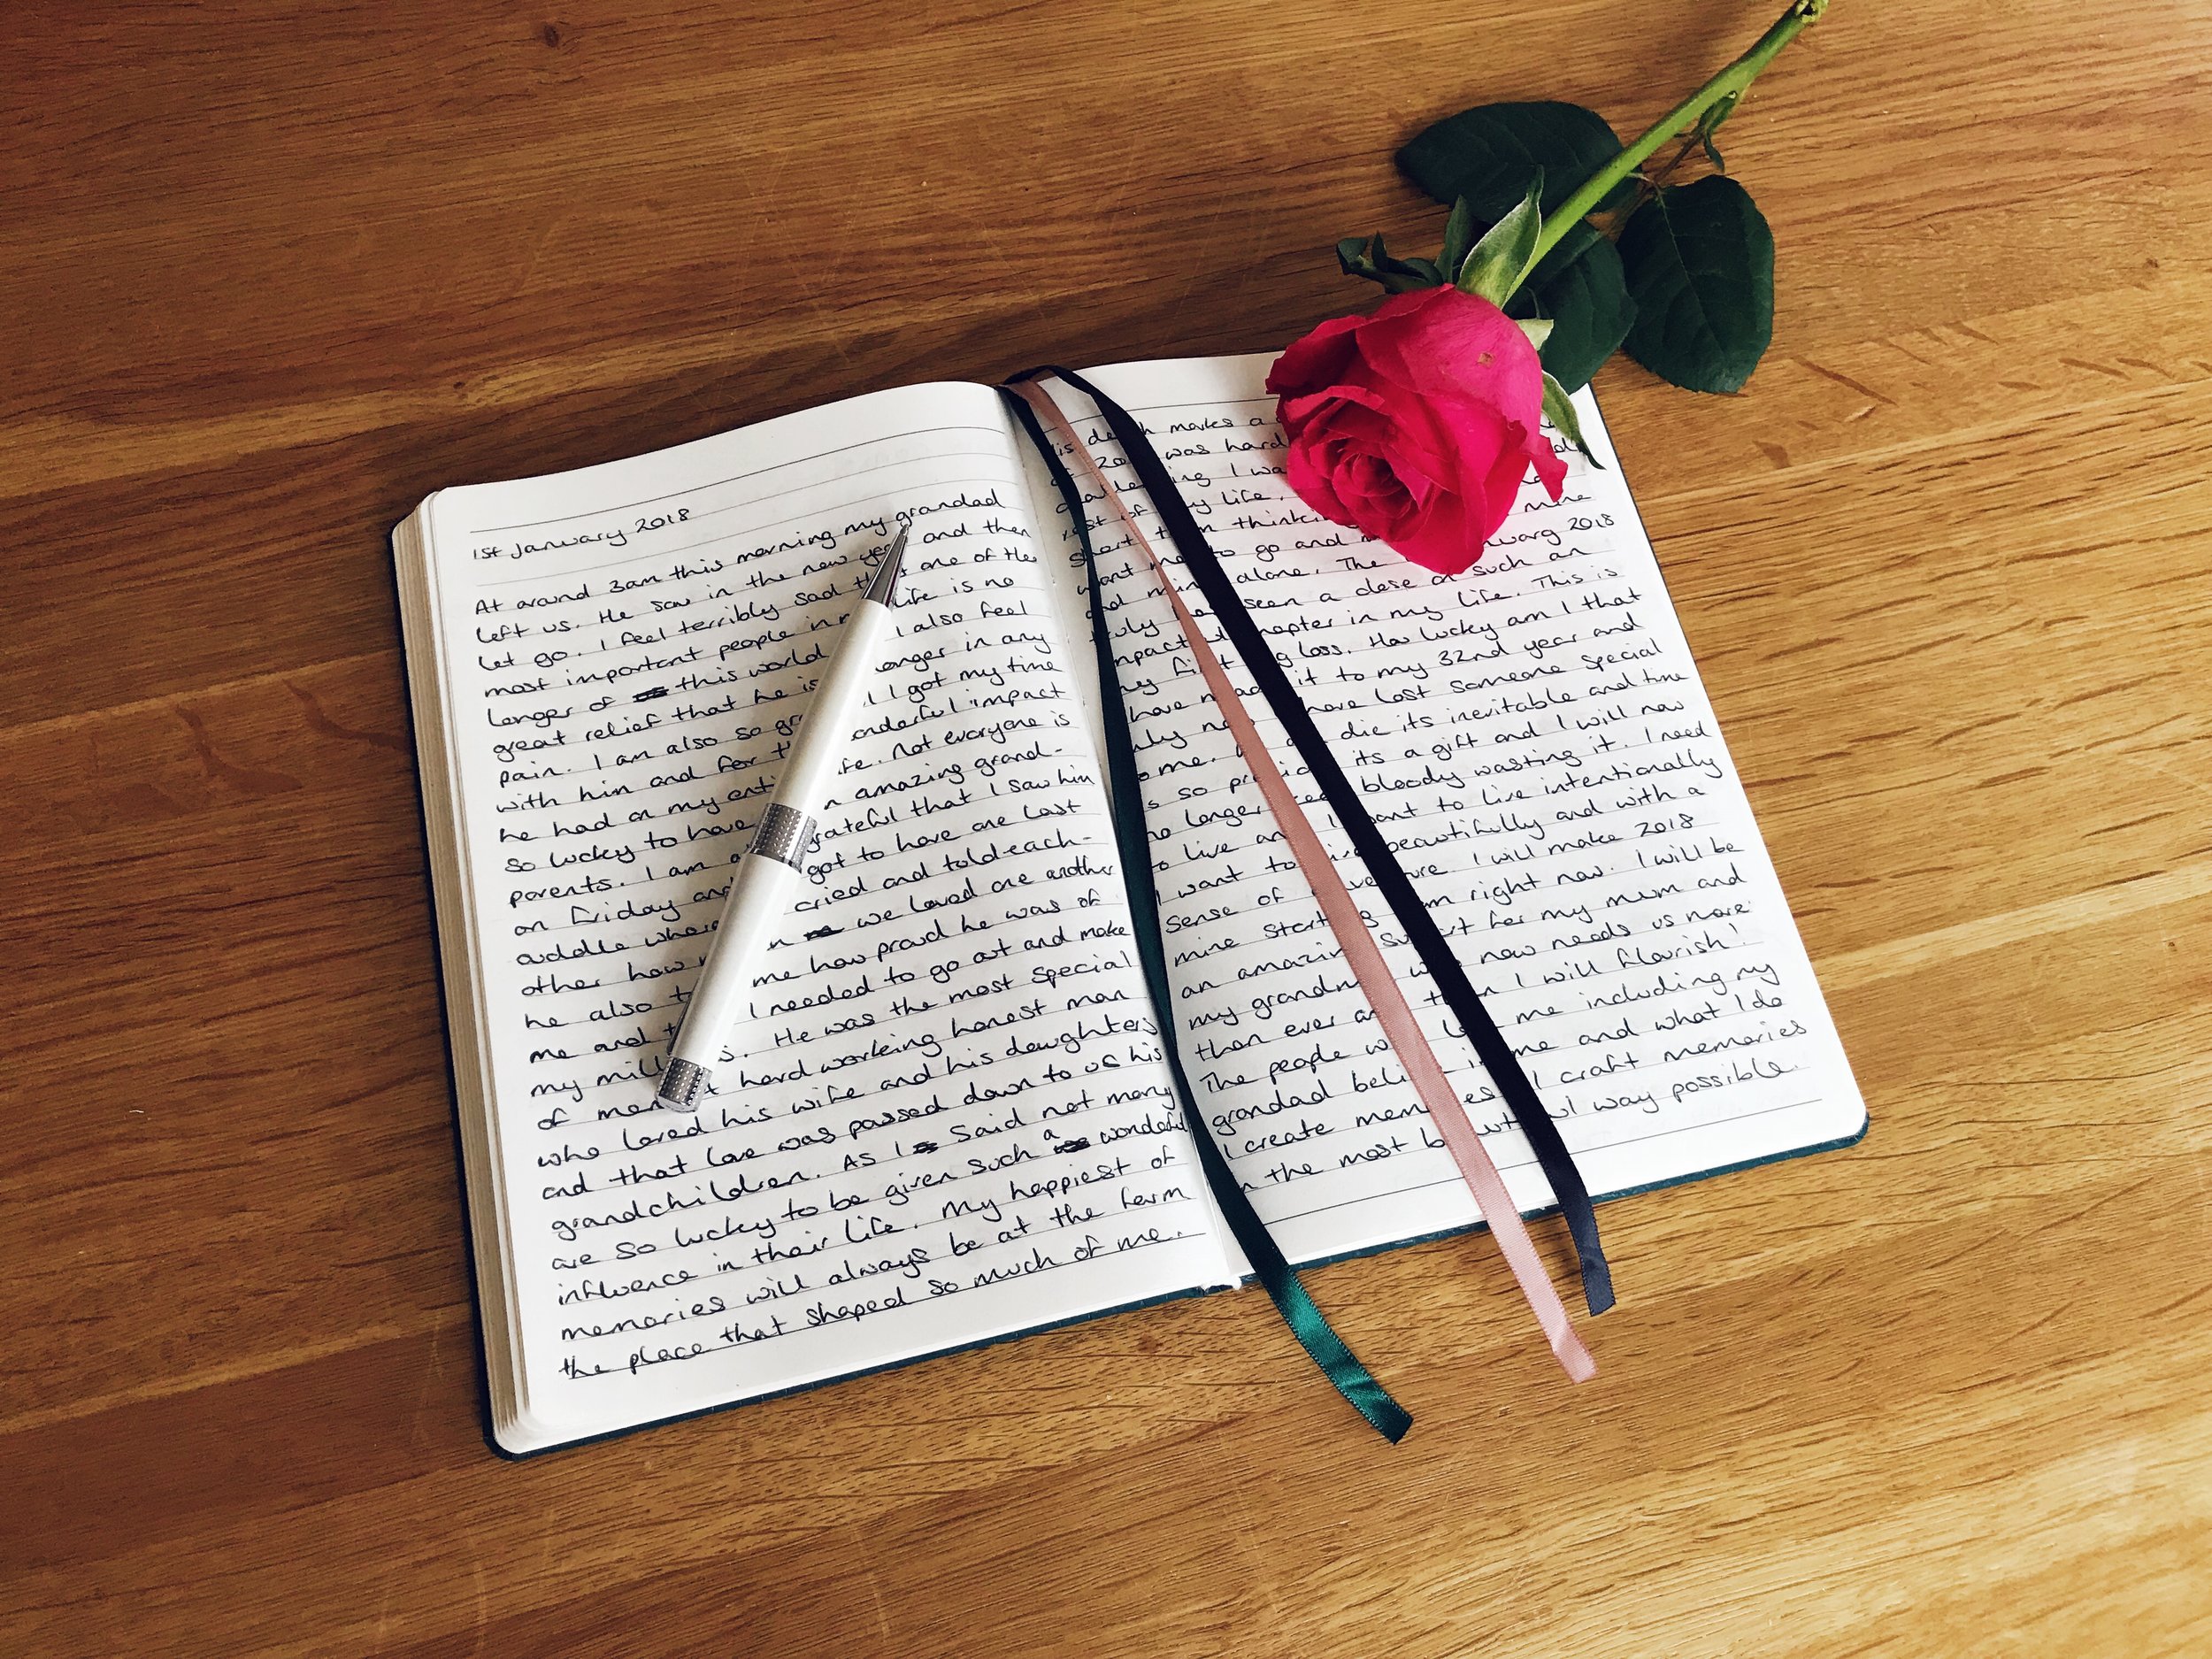 1st January 2018
At around 3am this morning my grandad
left us. He saw in the new year and then
let go. I feel terribly sad that one of the
most important people in my life is no
longer of this world. I also feel
great relief that he is longer in any
pain. I am also so I got my time
with him and for wonderful impact
he had on my life. Not everyone is
so lucky to have amazing grand-
parents. I am grateful that I saw him
on Friday and got to have one last
cuddle where cried and told each-
other how we loved one another
he also me how proud he was of
me and I needed to go out and make
my He was the most special
of men hard working honest man
who loved his wife and his daughters
and that love was passed down to us his
grandchildren. As I said not many
are so lucky to be given such a wonderful
influence in their life. My happiest of
memories will always be at the farm
the place that shaped so much of me.
death makes a
was hard
I
of my life.
short thinking mine
want me to go and January 2018
and mine alone. The
truly has seen a close of such an
chapter in my life. This is
my first big loss. How lucky am I that
have made it to my 32nd year and
only now have lost someone special
die its inevitable and time
is so precious its a gift and I will now
no longer bloody wasting it. I need
to live and I want to live intentionally
I want to live beautifully and with a
sense of adventure. I will make 2018
mine starting from right now. I will be
an amazing support for my mum and
my grandma who now needs us more
than ever and then I will flourish!
The people who me including my
grandad believe in me and what I do
I create memories I craft memories
in the most beautiful way possible.